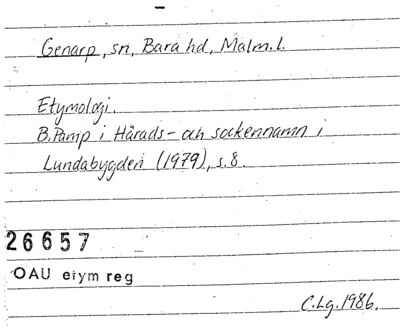 Genarp, sn, Bara hd, Malm. l.
Etymologi.
B. Pamp i Härads- och sockennamn i
Lundabygden (1979), s. 8.
26657
OAU etym reg
C.Lg. 1986.